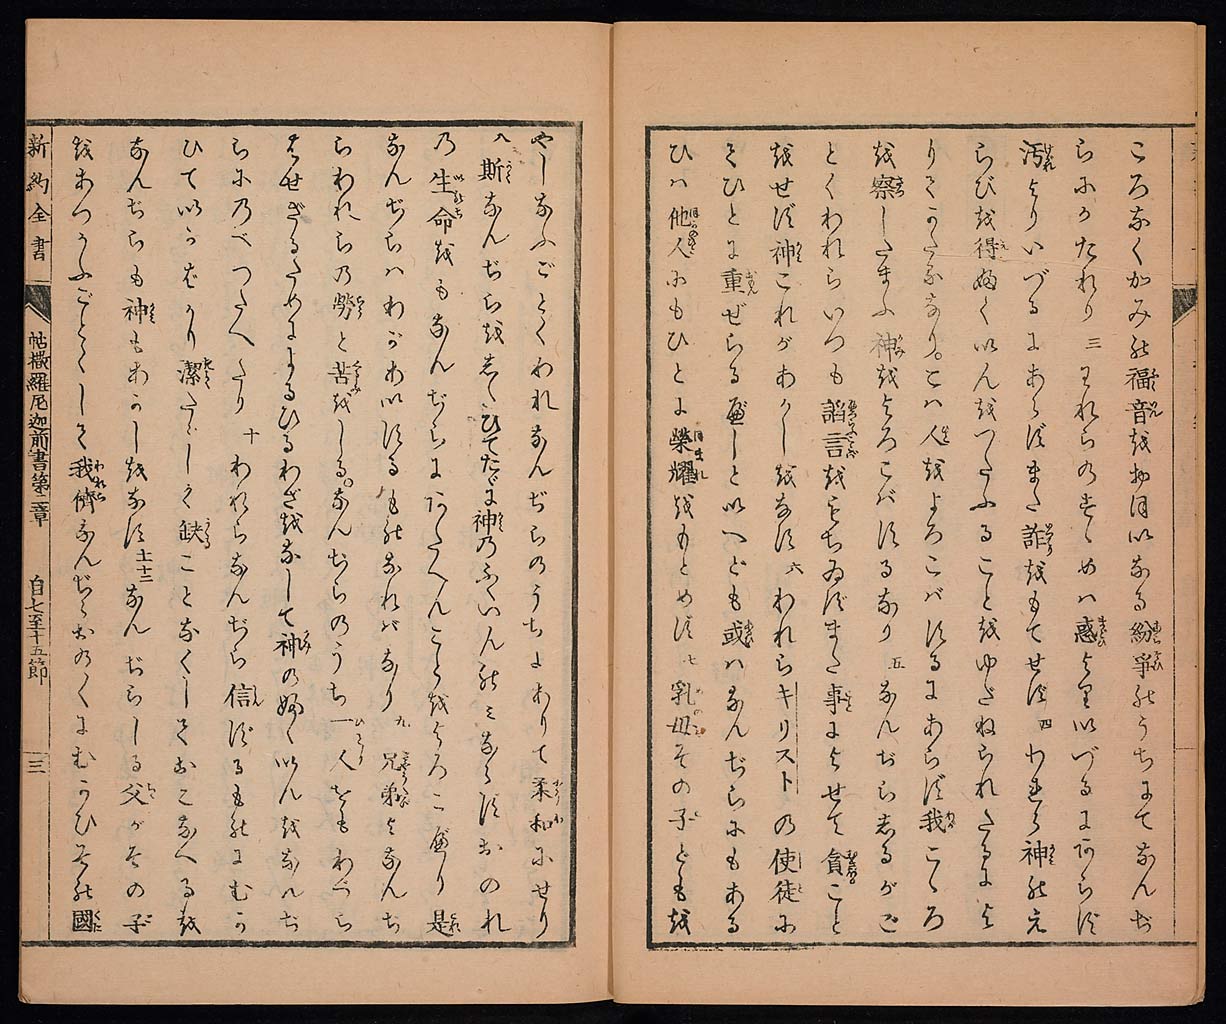 ころなくかみの福音をおほいなる紛爭のうちにてなんぢ
らにかたれり 三 われらのすゝめは惑よりいづるにあらず
汚よりいづるにあらずまた詐をもてせず 四 われら神のえ
らびを得ふくいんをつたふることをゆだねられたるによ
りてかたるなり。こは人をよろこばするにあらず我こゝろ
を察したまふ神をよろこばするなり 五 なんぢらしるがご
とくわれらいつも諂言をもちゐずまた事によせて貪こと
をせず神これがあかしをなす 六 われらキリストの使徒に
てひとに重ぜらるべしといへども或はなんぢらにもある
ひは他人にもひとに榮耀をもとめず 七 乳母その子どもを
やしなふごとくわれなんぢらのうちにありて柔和にせり
八 斯なんぢらをしたひてたゞに神のふくいんのみならずおのれ
の生命をもなんぢらにあたへんことをよろこべり是
なんぢらはわがあいするものなればなり 九 兄弟よなんぢ
らわれらの勞と苦をしる。なんぢらのうち一人をもわづら
はせざるためによるひるわざをなして神のふくいんをなんぢ
らにのべつたへたり 十 われらなんぢら信ずるものにむか
ひていかばかり潔たゞしく缺ことなくしておこなへるを
なんぢらも神もあかしをなす 十一十二 なんぢらしる父がその子
をあつかふごとくして我儕なんぢらおの〱にむかひその國
新約全書 帖撒羅尼迦前書第二章 自七至十五節 三